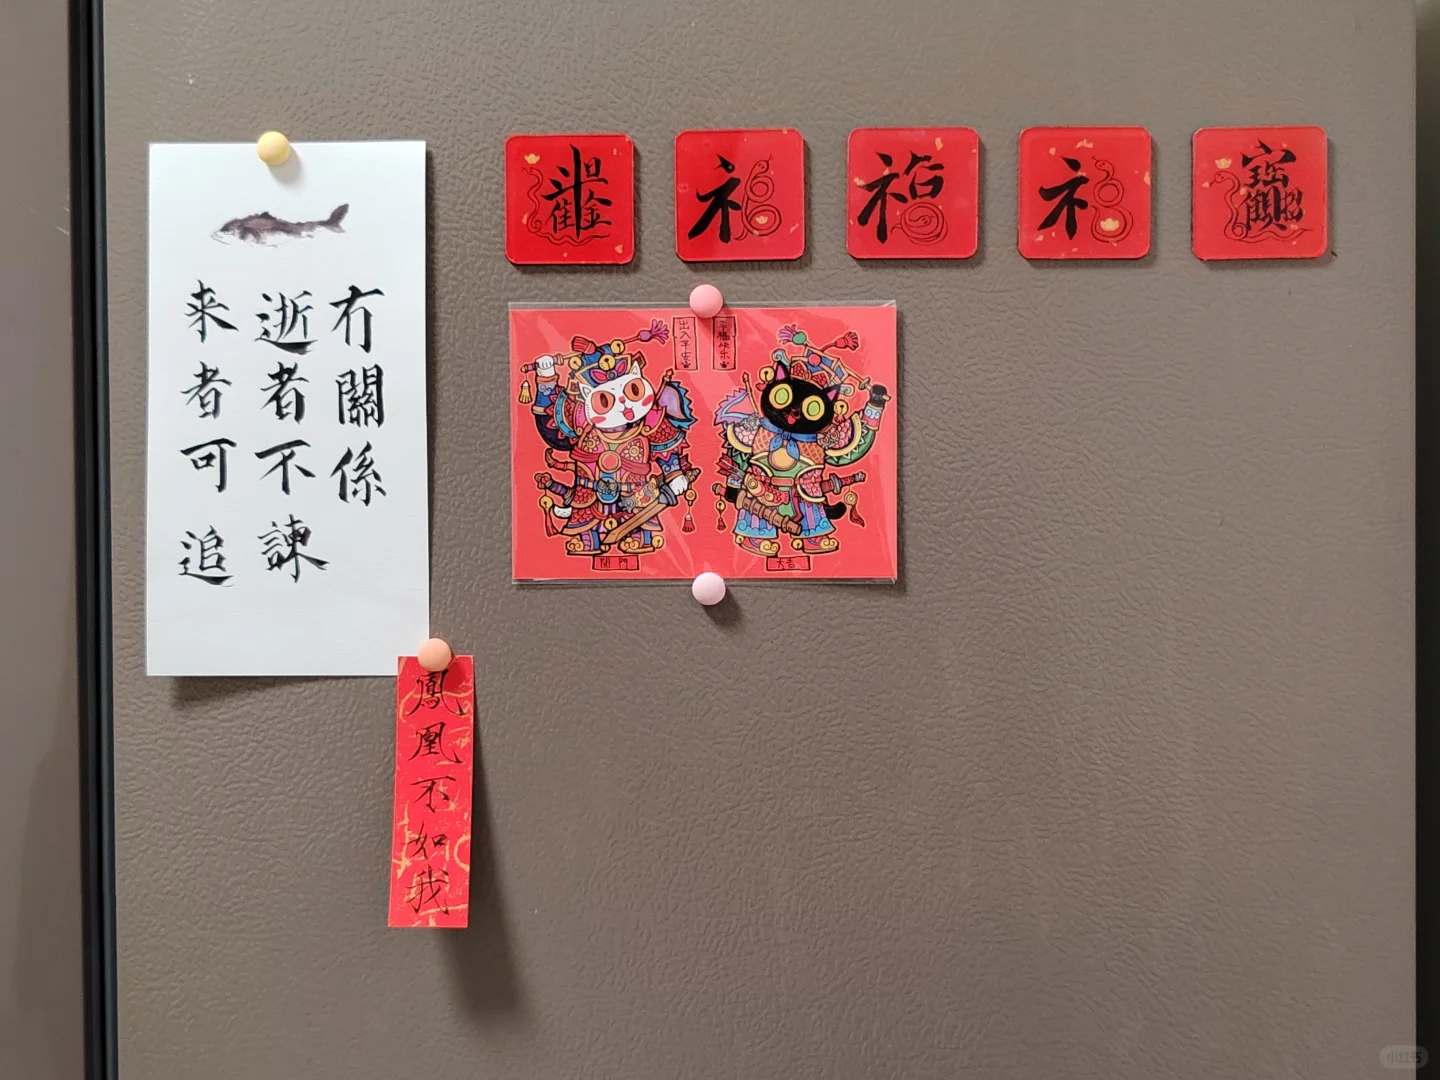 冇關係
逝者不諫
来者可追
鳳凰不如我
福
出入平安
幸福快乐
開門
大吉
小红书